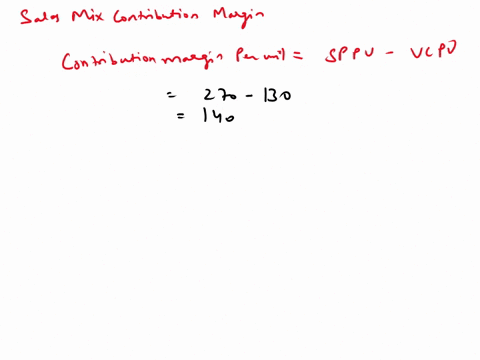 Sales Mix Contribution Margin
Contribution margin Per unit = SPPU - VCPU
= 270 - 130
= 140